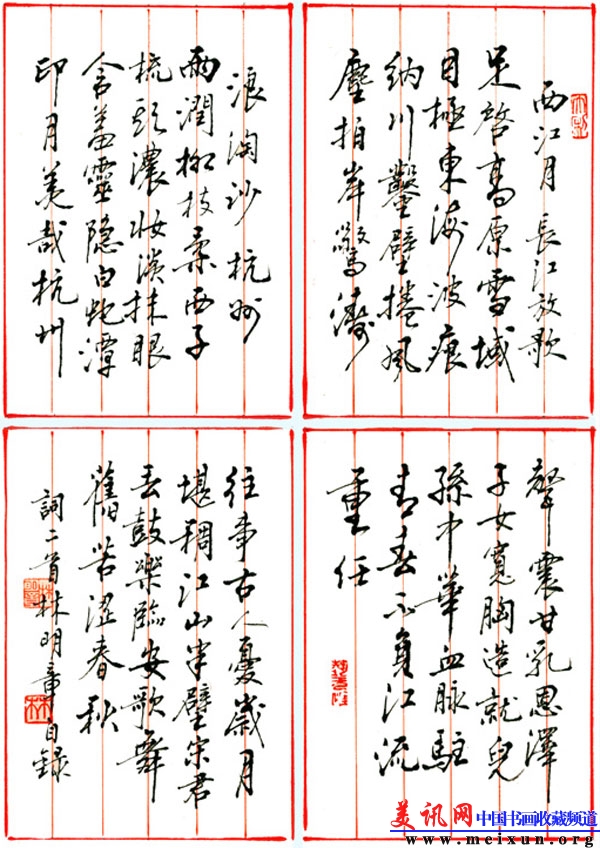 西江月 長江放歌
足啓高原雪域
目極東海波痕
納川鑿壁捲風
塵拍岸驚濤
聲震甘乳恩澤
子女寬胸造就兒
孫中華血脉駐
青春不負江流
重任
浪淘沙 杭州
雨潤柳枝柔西子
梳頭濃妝淡抹眼
含羞靈隱白蛇潭
印月美哉杭州
往事古人憂歲月
堪稠江山半壁宋君
丟鼓樂臨安歌舞
舊苦澀春秋
詞二首林明章自錄
林
美讯网 中国书画收藏频道
www.meixun.org